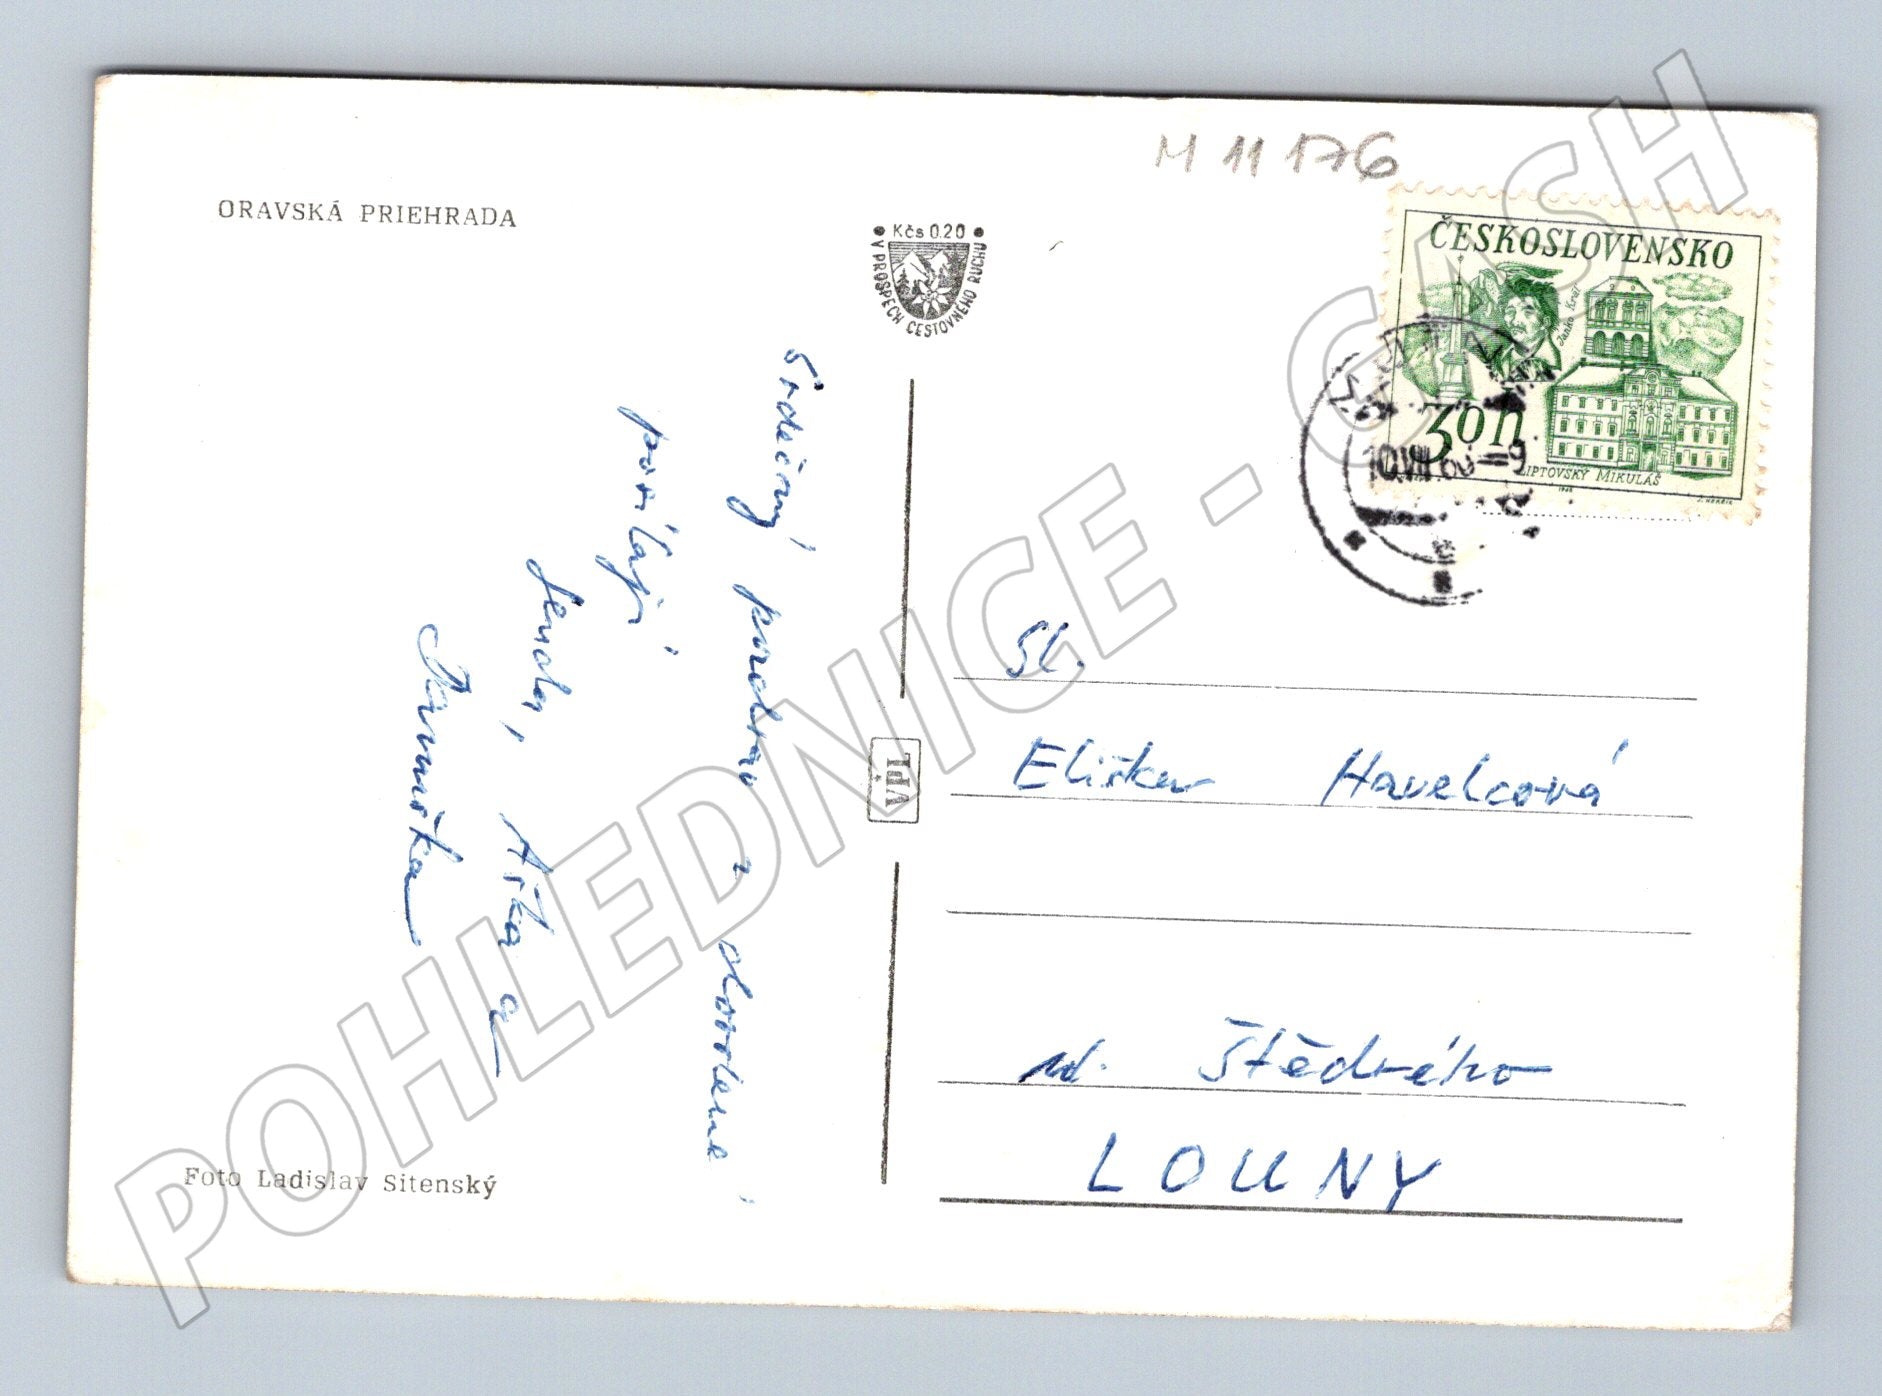 M 11 176
ORAVSKÁ PRIEHRADA
Kčs 0.20
V PROSPECH CESTOVNÉHO RUCHU
ČESKOSLOVENSKO
Janko Kráľ
30 h
LIPTOVSKÝ MIKULÁŠ
10.VIII.69
Srdečný pozdrav z dovolené
posílají
Lenda, Aťka a
Jaruška
VPL
Sl.
Eliška Havelcová
ul. Štědrého
LOUNY
Foto Ladislav Sitenský
POHLEDNICE - CASH